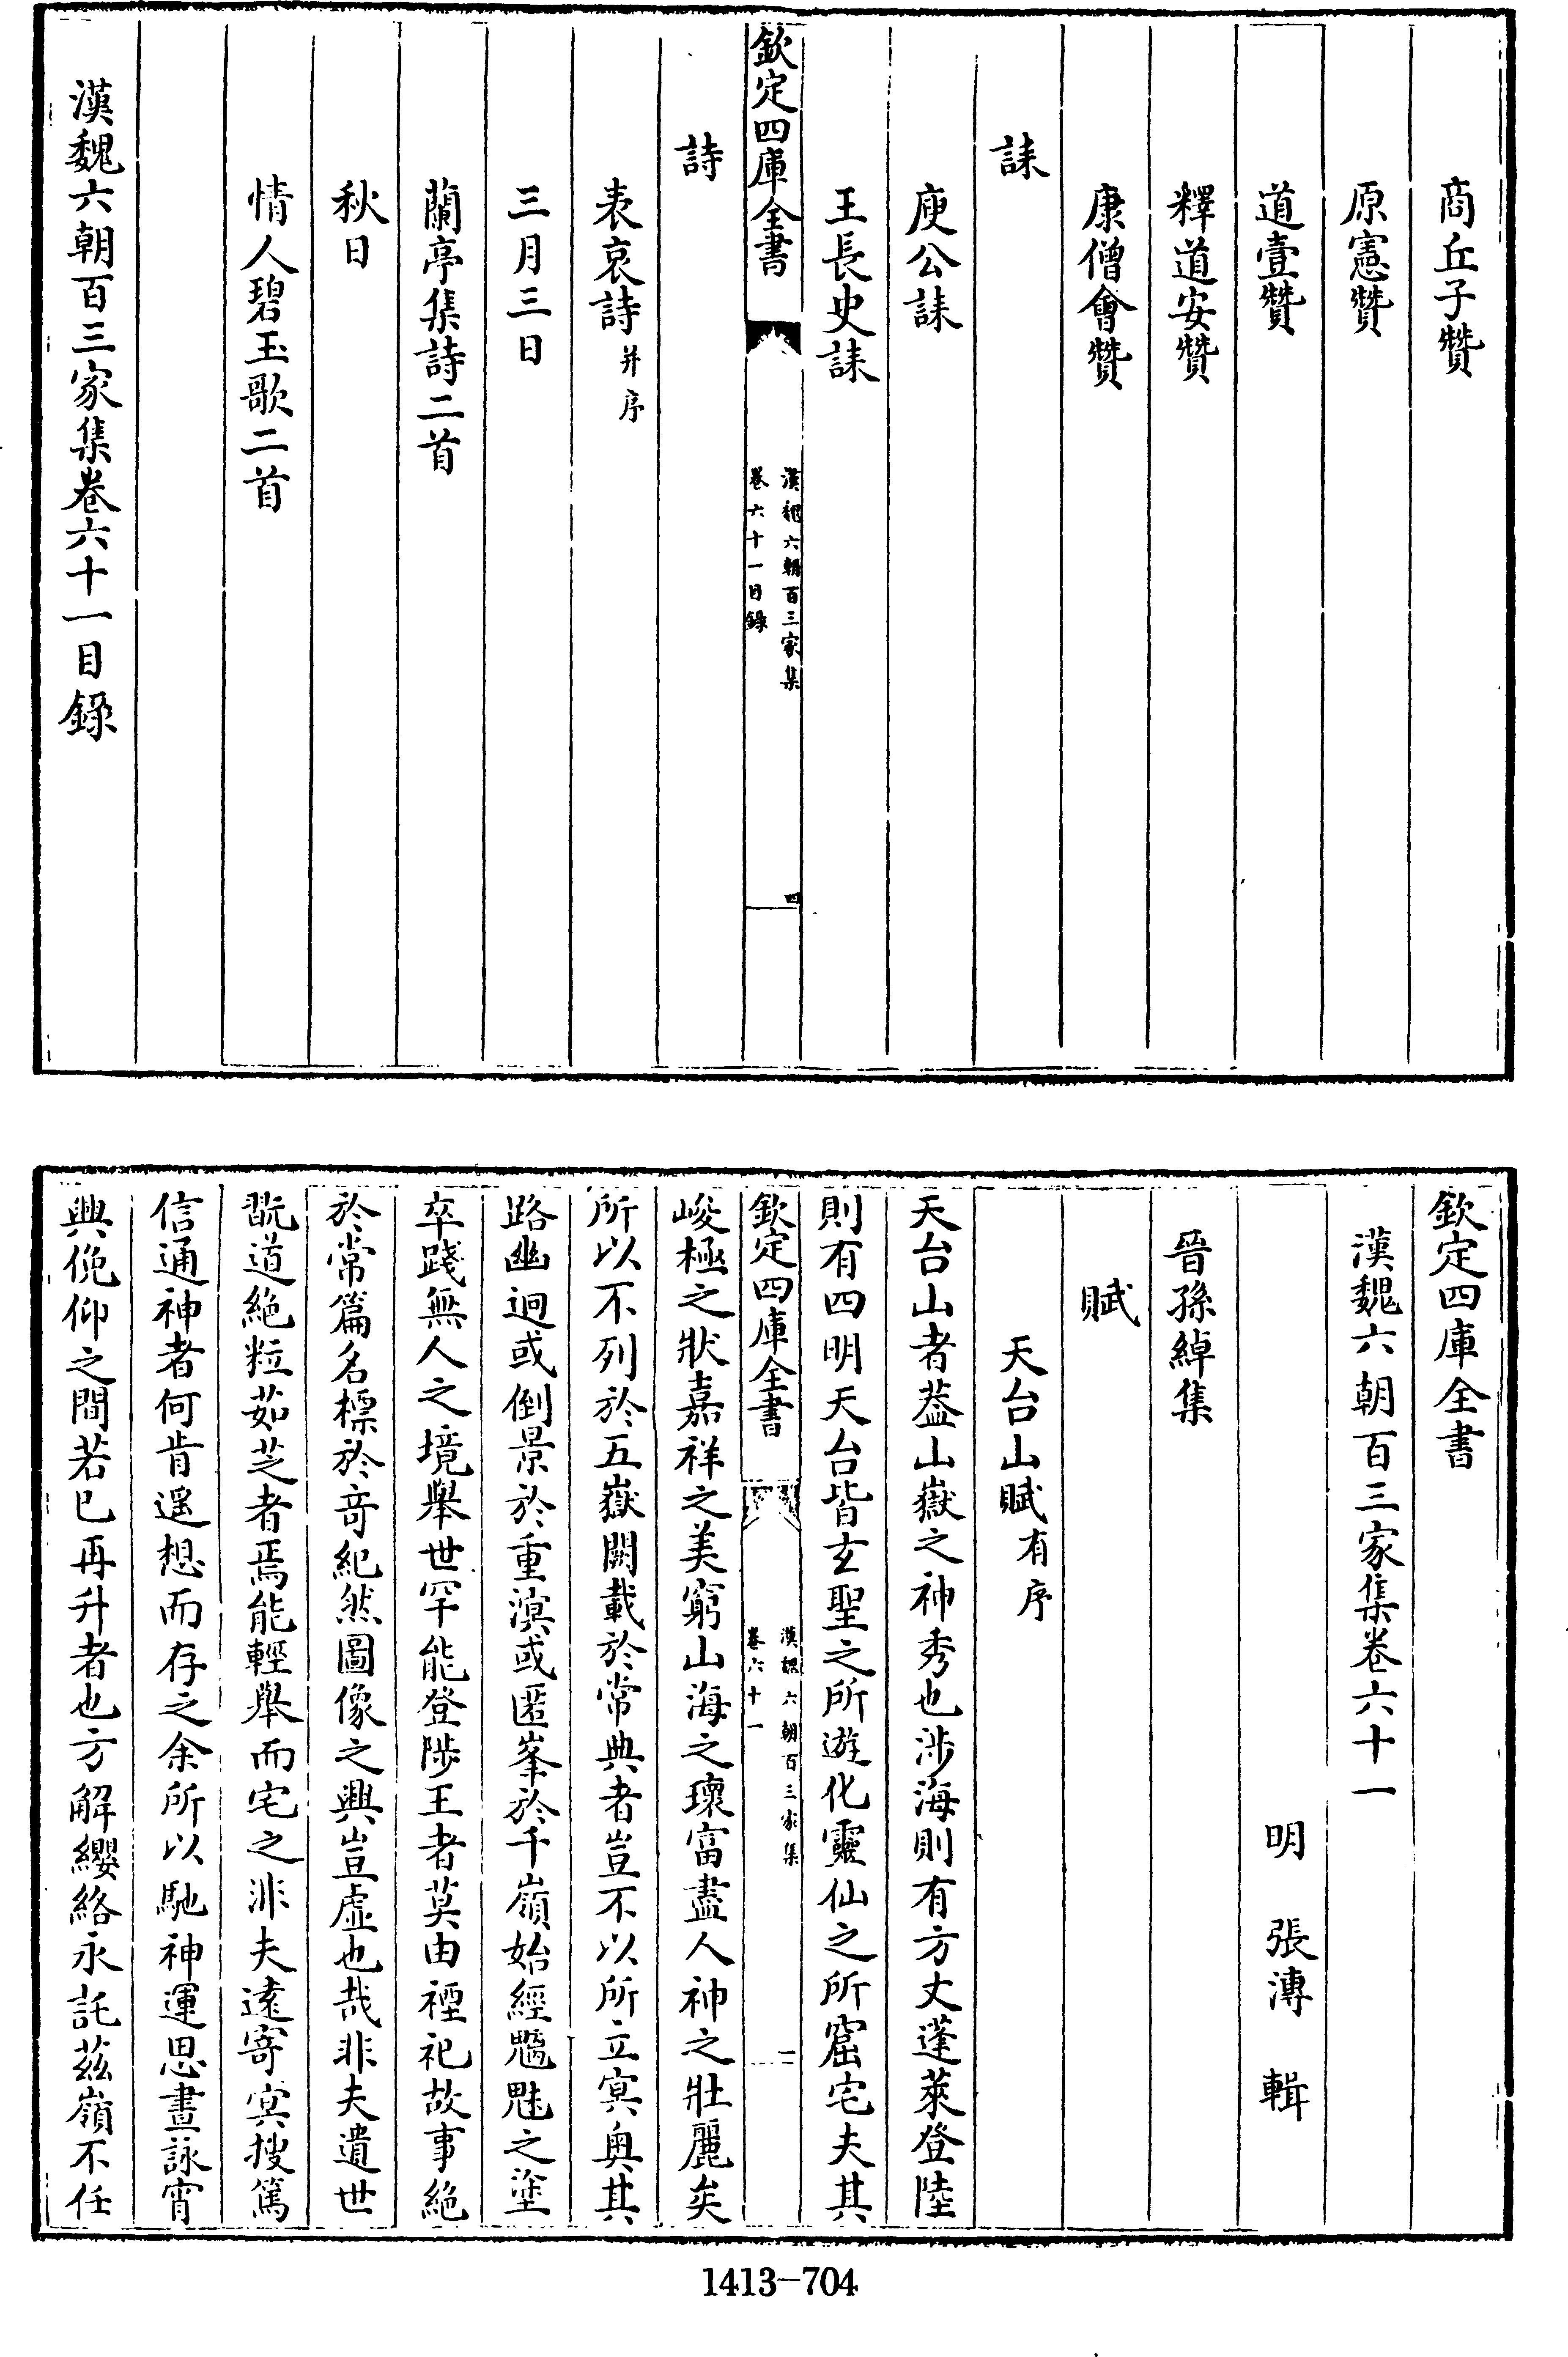 商丘子贊
原憲贊
道壹贊
釋道安贊
康僧會贊
誄
庾公誄
王長史誄
欽定四庫全書
漢魏六朝百三家集
卷六十一目錄
四
詩
表哀詩并序
三月三日
蘭亭集詩二首
秋日
情人碧玉歌二首
漢魏六朝百三家集卷六十一目錄
欽定四庫全書
漢魏六朝百三家集卷六十一
明 張溥 輯
晉孫綽集
賦
天台山賦有序
天台山者葢山嶽之神秀也涉海則有方丈蓬萊登陸
則有四明天台皆玄聖之所遊化靈仙之所窟宅夫其
欽定四庫全書
漢魏六朝百三家集
卷六十一
一
峻極之狀嘉祥之美窮山海之瓌富盡人神之壯麗矣
所以不列於五嶽闕載於常典者豈不以所立冥奥其
路幽迥或倒景於重溟或匿峯於千嶺始經魑魅之塗
卒踐無人之境舉世罕能登陟王者莫由禋祀故事絶
於常篇名標於竒紀然圖像之興豈虚也哉非夫遺世
翫道絶粒茹芝者焉能輕舉而宅之非夫遠寄冥搜篤
信通神者何肯遥想而存之余所以馳神運思晝詠宵
興俛仰之間若已再升者也方解纓絡永託茲嶺不任
1413-704